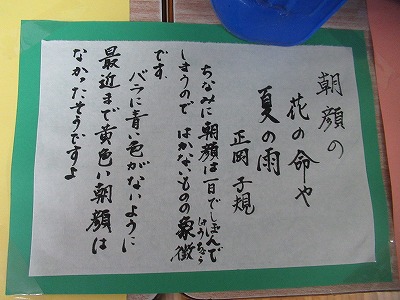 朝顔の
花の命や
夏の雨
正岡 子規
ちなみに朝顔は一日でしぼんで
しまうので はかないものの象徴
しょうちょう
です
バラに青い色がないように
最近まで黄色い朝顔は
なかったそうですよ